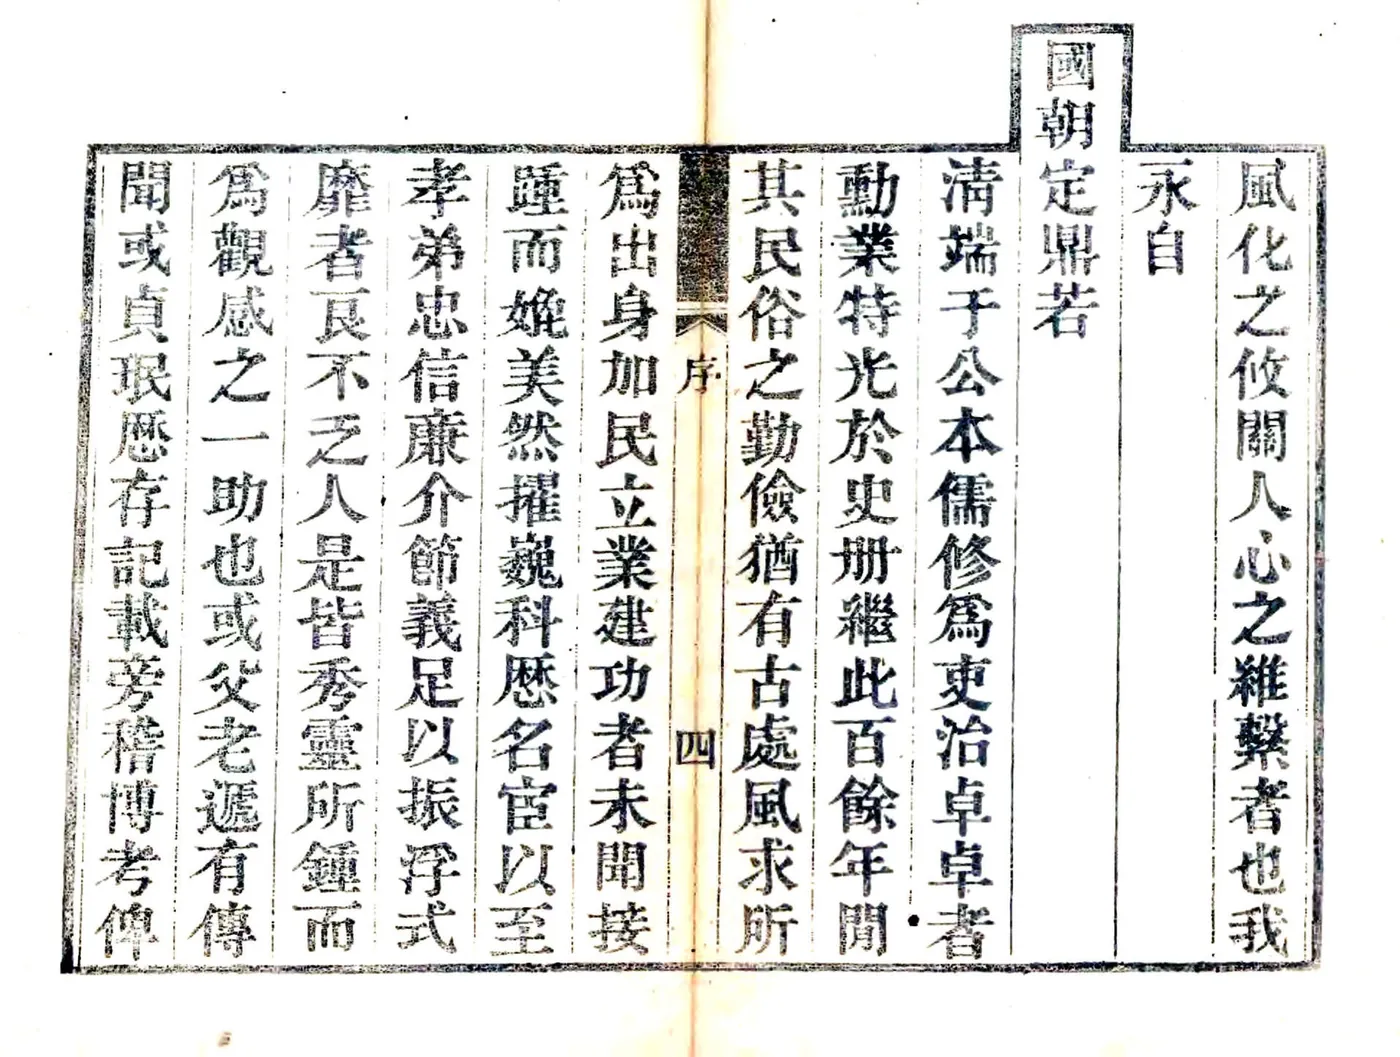 風化之攸關人心之維繫者也我
永自
國朝定鼎若
清端于公本儒修為吏治卓卓者
勳業特光於史册繼此百餘年間
其民俗之勤儉猶有古處風求所
序
四
爲出身加民立業建功者未聞接
踵而媲美然擢巍科歷名宦以至
孝弟忠信廉介節義足以振浮式
靡者良不乏人是皆秀靈所鍾而
爲觀感之一助也或父老遞有傳
聞或貞珉歷存記載旁稽博考俾